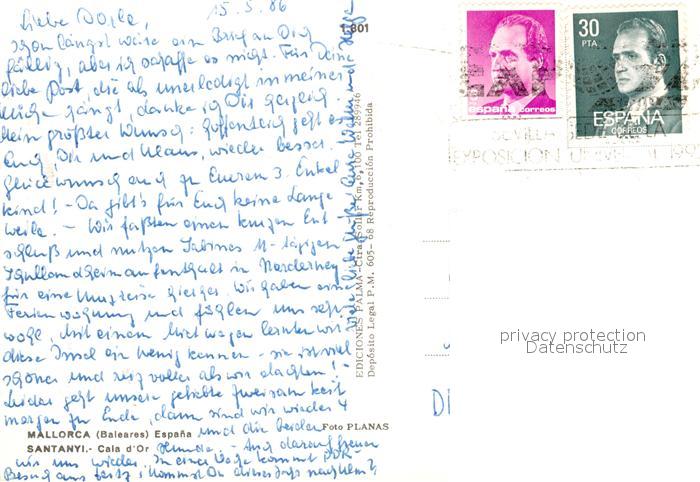 15.5.86
Liebe Dorle,
schon längst wäre ein Brief an Dich
fällig, aber ich schaffe es nicht. Für Deine
liebe Post, die als unerledigt in meiner
Küche hängt, danke ich Dir herzlich.
Mein größter Wunsch: hoffentlich geht es
Euch, Dir und Klaus, wieder besser.
Glückwunsch auch zu Eurem 3. Enkel
kind! - Da gibt's für Euch keine Lange
weile. - Wir faßten einen kurzen Ent -
schluß und nutzen Sabines 11-tägigen
Schullandheimaufenthalt in Norderney
für eine Flugreise hierher. Wir haben eine
Ferienwohnung und fühlen uns sehr
wohl. Mit einem Mietwagen lernten wir
diese Insel ein wenig kennen - sie ist viel
schöner und reizvoller als wir dachten! -
Leider geht unsere geliebte Zweisamkeit
morgen zu Ende, dann sind wir wieder 4
und die beiden
Hunde. - Auch darauf freuen
wir uns wieder. In einer Woche kommt DDR-
Besuch aus Zeitz. Kommst Du dieses Jahr nach
Viele liebe Grüße Eure
MALLORCA (Baleares) España
Foto PLANAS
SANTANYI.- Cala d'Or
1.801
EDICIONES PALMA -Ctra. Soller Km. 6,100 Tel 289946
Depósito Legal P.M. 605- 68 Reproducción Prohibida
españa correos
30
PTA
ESPAÑA
CORREOS
SEVILLA
EXPOSICION UNIVERSAL 1992
privacy protection
Datenschutz